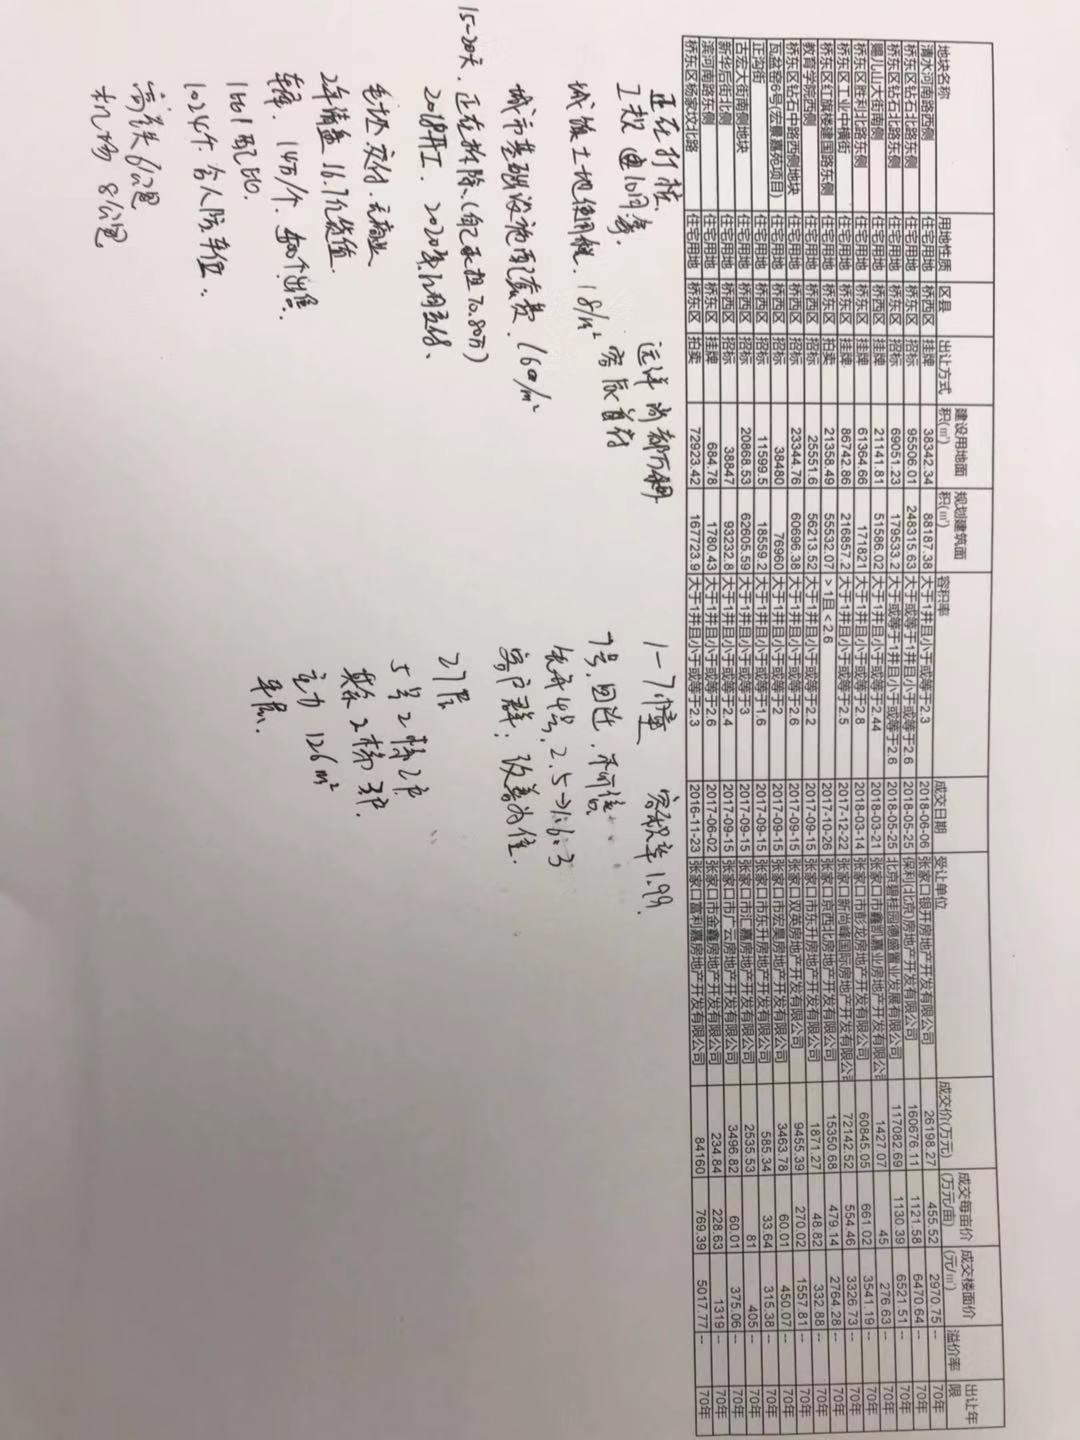 地块名称 用地性质 区县 出让方式 建设用地面积(㎡) 规划建筑面积(㎡) 容积率 成交日期 受让单位 成交价(万元) 成交每亩价(万元/亩) 成交楼面价(元/㎡) 溢价率 出让年限
清水河南路西侧 住宅用地 桥西区 挂牌 38342.34 88187.38 大于1并且小于或等于2.3 2018-06-06 张家口银开房地产开发有限公司 26198.27 455.52 2970.75 -- 70年
桥东区钻石北路东侧 住宅用地 桥东区 招标 95506.01 248315.63 大于或等于1并且小于或等于2.6 2018-05-25 保利(北京)房地产开发有限公司 160676.11 1121.58 6470.64 -- 70年
桥东区钻石北路东侧 住宅用地 桥东区 招标 69051.23 179533.2 大于或等于1并且小于或等于2.6 2018-05-25 北京碧桂园德盛置业发展有限公司 117082.69 1130.39 6521.51 -- 70年
赐儿山大街南侧 住宅用地 桥西区 挂牌 21141.81 51586.02 大于1并且小于或等于2.44 2018-03-21 张家口市鑫凯嘉业房地产开发有限公司 1427.07 45 276.63 -- 70年
桥东区胜利北路东侧 住宅用地 桥东区 挂牌 61364.66 171821 大于1并且小于或等于2.8 2018-03-14 张家口市彭龙房地产开发有限公司 60845.05 661.02 3541.19 -- 70年
桥东区工业中横街 住宅用地 桥东区 挂牌 86742.86 216857.2 大于1并且小于或等于2.5 2017-12-22 张家口新尚峰国际房地产开发有限公司 72142.52 554.46 3326.73 -- 70年
桥东区红旗楼建国路东侧 住宅用地 桥东区 拍卖 21358.49 55532.07 > 1且 < 2.6 2017-10-26 张家口京西北房地产开发有限公司 15350.68 479.14 2764.28 -- 70年
教育学院西侧 住宅用地 桥西区 招标 25551.6 56213.52 大于1并且小于或等于2.2 2017-09-15 张家口市东升房地产开发有限公司 1871.27 48.82 332.88 -- 70年
桥东区钻石中路西侧地块 住宅用地 桥西区 招标 23344.76 60696.38 大于1并且小于或等于2.6 2017-09-15 张家口双英房地产开发有限公司 9455.39 270.02 1557.81 -- 70年
瓦盆窑6号(宏景嘉苑项目) 住宅用地 桥东区 招标 38480 76960 大于1并且小于或等于2 2017-09-15 张家口市宏昊房地产开发有限公司 3463.78 60.01 450.07 -- 70年
正沟街 住宅用地 桥西区 招标 11599.5 18559.2 大于1并且小于或等于1.6 2017-09-15 张家口市东升房地产开发有限公司 585.34 33.64 315.38 -- 70年
古宏大街南侧地块 住宅用地 桥西区 招标 20868.53 62605.59 大于1并且小于或等于3 2017-09-15 张家口市汇嘉房地产开发有限公司 2535.53 81 405 -- 70年
新华后街北侧 住宅用地 桥西区 招标 38847 93232.8 大于1并且小于或等于2.4 2017-09-15 张家口市广云房地产开发有限公司 3496.82 60.01 375.06 -- 70年
滨河南路东侧 住宅用地 桥东区 挂牌 684.78 1780.43 大于1并且小于或等于2.6 2017-06-02 张家口市金鑫房地产开发有限公司 234.84 228.63 1319 -- 70年
桥东区杨家坟北路 住宅用地 桥东区 拍卖 72923.42 167723.9 大于1并且小于或等于2.3 2016-11-23 张家口富利嘉房地产开发有限公司 84160 769.39 5017.77 -- 70年
正在打桩. 远洋 1-7幢 容积率1.99.
工投 7号,回迁.不可售.
城镇土地使用税. 18/m² 先开4号,2.5→16.3
城市基础设施配套费. 160/m² 客户群:改善为住.
15-20天. 正在拆除.(自己承担70.80万)
2018开工. 27层
毛坯交付.无商业 5号2梯2户
2年清盘 16.7亿货值. 其余2梯3户.
车库. 14万/个. 主力 126m²
1比1配比.
1024个 含人防车位.
高铁6公里
机场 8公里